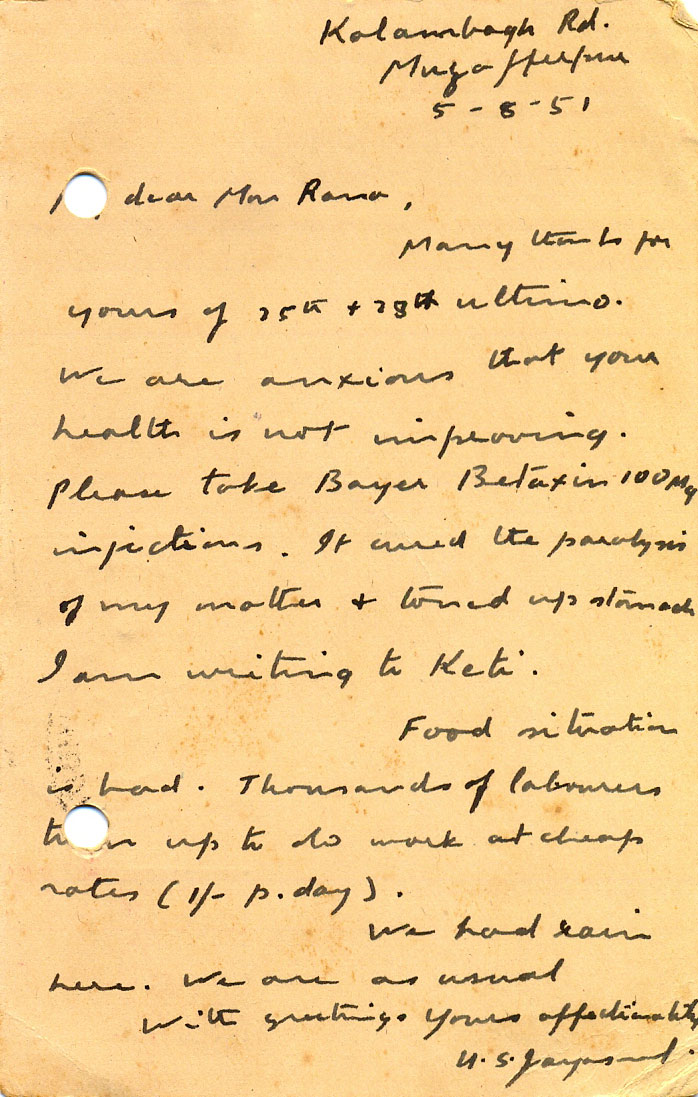 Kalambagh Rd.
Muzafferpur
5 - 8 - 51
dear Mon Rana,
Many thanks for
yours of 25th + 28th ultimo.
We are anxious that your
health is not improving.
Please take Bayer Betaxin 100 Mg
injections. It cured the paralysis
of my mother + toned up stomach
I am writing to Keti.
Food situation
is bad. Thousands of labourers
turn up to do work at cheap
rates (1/- p. day).
We had rain
here. We are as usual
With greetings Yours affectionately